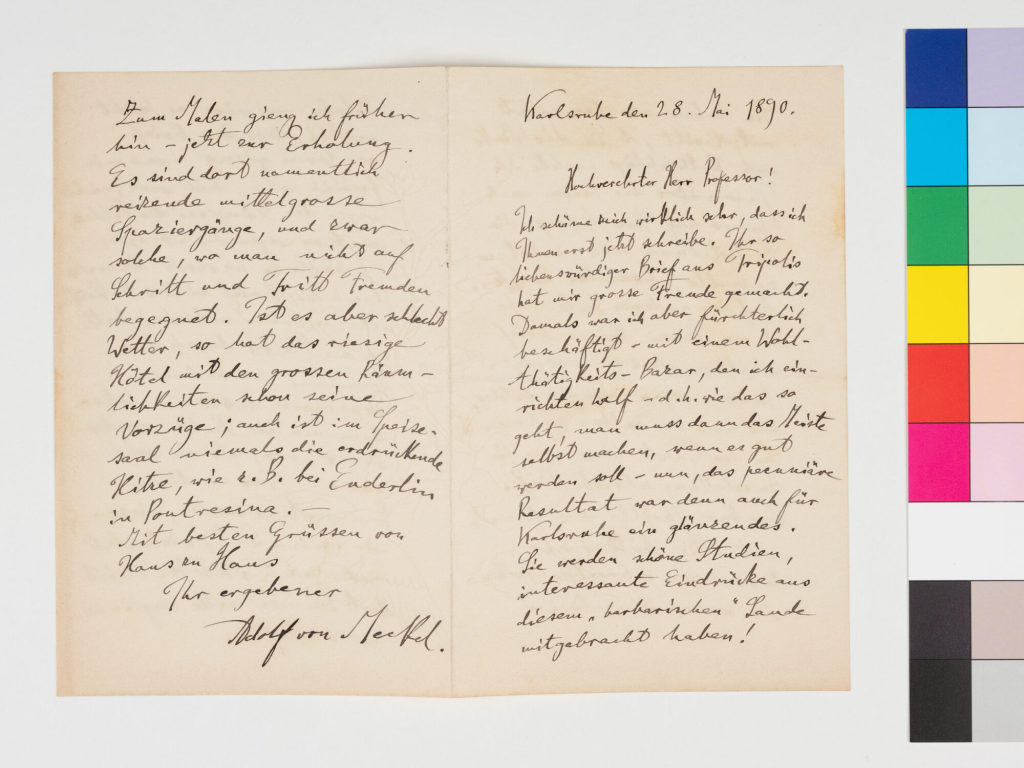 Zum Malen gieng ich früher
hin – jetzt zur Erholung.
Es sind dort namentlich
reizende mittelgrosse
Spaziergänge, und zwar
solche, wo man nicht auf
Schritt und Tritt Fremden
begegnet. Ist es aber schlecht
Wetter, so hat das riesige
Hôtel mit den grossen Räum-
lichkeiten schon seine
Vorzüge; auch ist im Speise-
saal niemals die erdrückende
Hitze, wie z. B. bei Enderlin
in Pontresina. –
Mit besten Grüssen von
Haus zu Haus
Ihr ergebener
Adolf von Meckel.
Karlsruhe den 28. Mai 1890.
Hochverehrter Herr Professor!
Ich schäme mich wirklich sehr, dass ich
Ihnen erst jetzt schreibe. Ihr so
liebenswürdiger Brief aus Tripolis
hat mir grosse Freude gemacht.
Damals war ich aber fürchterlich
beschäftigt – mit einem Wohl-
thätigkeits-Bazar, den ich ein-
richten half – d. h. wie das so
geht, man muss dann das Meiste
selbst machen, wenn es gut
werden soll – nun, das pecuniäre
Resultat war denn auch für
Karlsruhe ein glänzendes.
Sie werden schöne Studien,
interessante Eindrücke aus
diesem „barbarischen" Lande
mitgebracht haben!